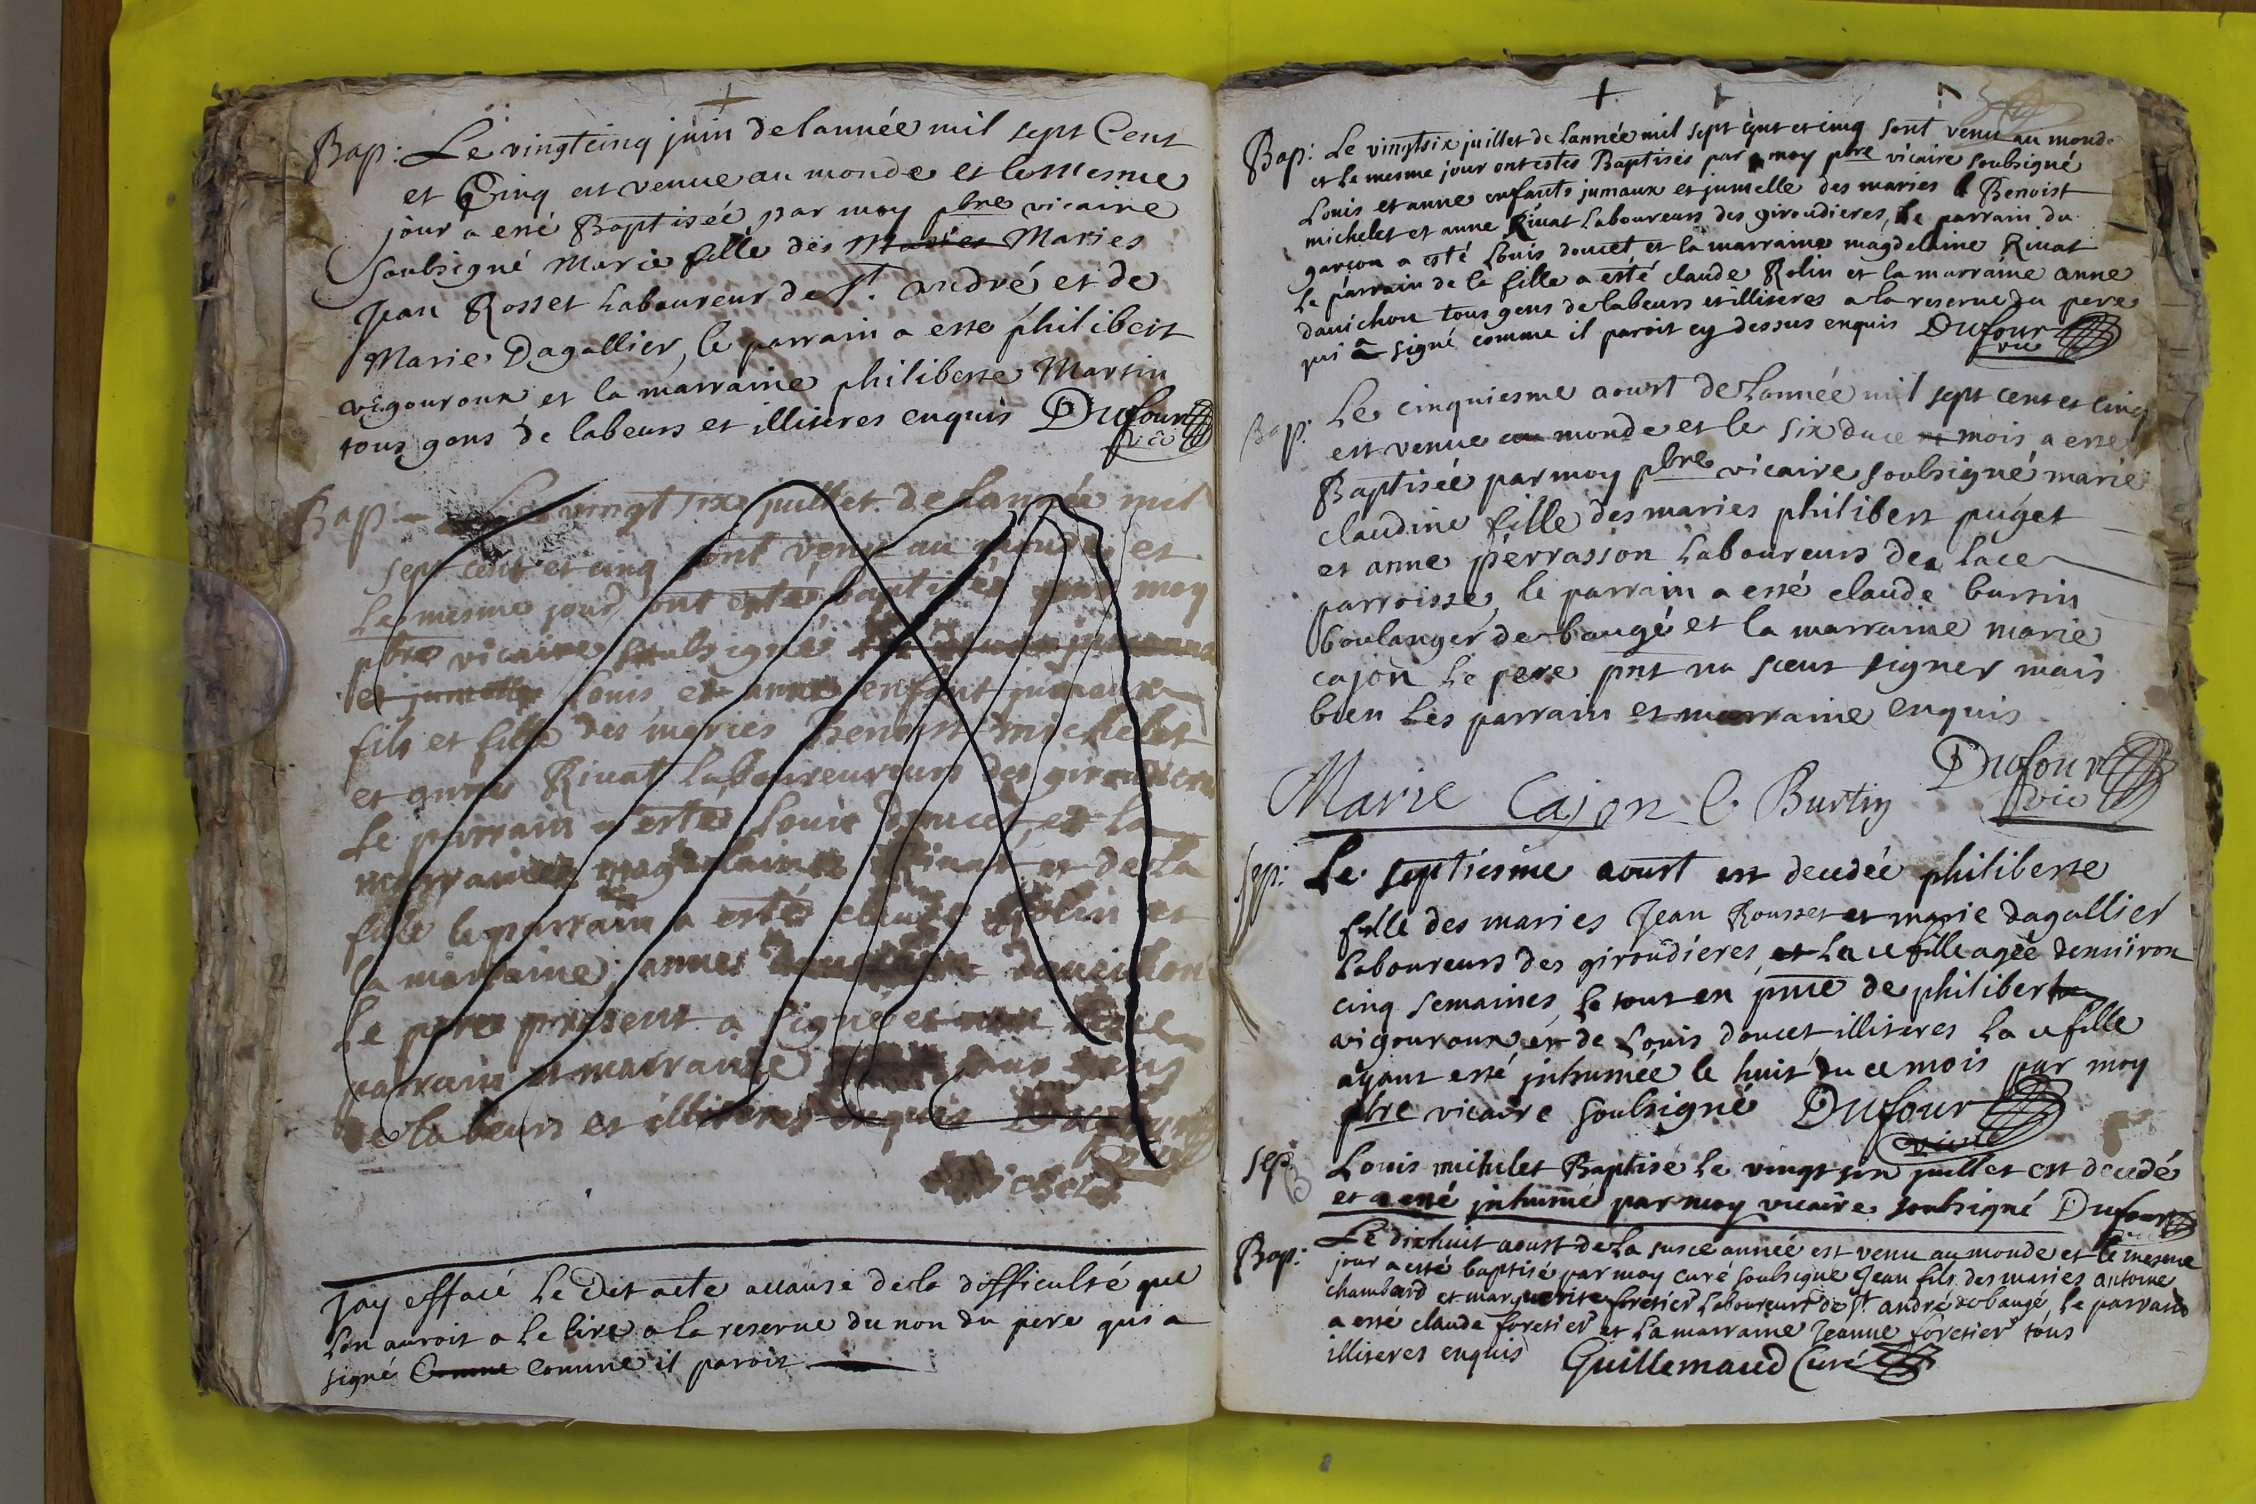 Bap: Le vingtcinq juin de lannée mil sept Cent
et Cinq est venue au monde et le mesme
jour a esté Baptisée par moy pbre vicaire
soubsigné Marie fille des Maries Maries
Jean Rosset laboureur de St. André et de
Marie Dagallier, le parrain a esté philibert
vigouroux et la marraine philiberte Martin
tous gens de labeurs et illiteres enquis Dufour
vic
Bap Le vingt six juillet de lannée mil
sept cent et cinq sont venu au monde et
le mesme jour ont esté baptisés par moy
pbre vicaire soubsigné
et jumelle Louis et anne enfant jumaux
fils et fille des maries Benoist michelet
et anne Rivat laboureureurs des giroudieres
le parrain a esté Louis doucet, et la
marraine magdelaine Rivat et de la
fille le parrain a esté claude Rolin et
la marraine anne danichon
le pere present a signé et non
parrain et marraine tous gens
de labeurs et illiteres enquis
Jay effacé le dit acte acause de la difficulté que
lon auroit a le lire a la reserve du non du pere qui a
signé Comme comme il paroit
Bap: Le vingtsix juillet de lannée mil sept cent et cinq sont venu au monde
et le mesme jour ont estés Baptisés par moy pbre vicaire soubsigné
Louis et anne enfants jumaux et jumelle des maries Benoist
michelet et anne Rivat laboureurs des giroudieres, le parrain du
garçon a esté Louis doucet et la marraine magdelaine Rivat
le parrain de la fille a esté claude Rolin et la marraine anne
danichon tous gens de labeurs et illiteres a la reserve du pere
qui a signé comme il paroit cy dessus enquis Dufour
vic
Bap: Le cinquiesme aoust de lannée mil sept cent et cinq
est venue au monde et le six du ce mois a esté
Baptisée par moy pbre vicaire soubsigné marie
claudine fille des maries philibert puget
et anne perrasson laboureurs de la ce
parroisse, le parrain a esté claude burtin
boulanger de baugé et la marraine marie
cajon le pere pnt na sceut signer mais
bien les parrain et marraine enquis
Dufour
vic
Marie Cajon C Burtin
sep: Le septiesme aoust est decedée philiberte
fille des maries Jean Rousset et marie dagallier
laboureurs des giroudieres, et la ce fille agée denviron
cinq semaines, le tout en pnce de philibert
vigouroux et de Louis doucet illiteres la ce fille
ayant esté inhumée le huit du ce mois par moy
pbre vicaire soubsigné Dufour
vic
sep: Louis michelet Baptisé le vingt six juillet est decedé
et a esté inhumé par moy vicaire soubsigné Dufour
Bap: Le dixhuit aoust de la susce année est venu au monde et le mesme
jour a esté baptisé par moy curé soubsigné Jean fils des maries antoine
chambard et marguerite foretier laboureurs de St. andré de baugé, le parrain
a esté claude foretier et la marraine Jeanne foretier tous
illiteres enquis Guillemaud Curé